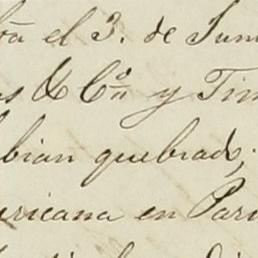 el 3. de Jun
& Cª y Tim
bian quebrado;
ricana en Pari